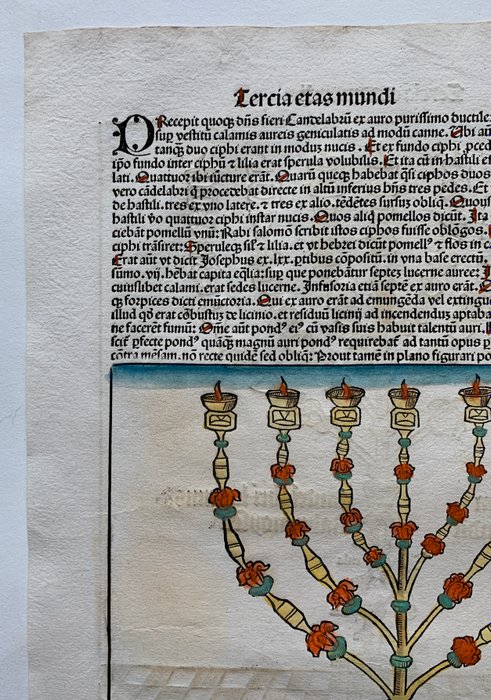 Tercia etas mundi
PRecepit quoqꝫ dñs fieri Candelabrũ ex auro purissimo ductile
sup vestitũ calamis aureis geniculatis ad modũ canne. Ubi aũt
tanqꝫ duo ciphi erant in modũ nucis. Et ex fundo ciphi ꝓced
ip̃o fundo inter ciphũ ⁊ lilia erat sperula volubilis. Et ita cũ in hastili et
lati. Quattuor ibi iũcture erãt. Quarũ queqꝫ habebat q̃si ciphos duos
vero cãdelabri q̃ procedebat directe in altũ inferius hñs tres pedes. Et
de hastili. tres ex vno latere. ⁊ tres ex alio. tẽdẽtes sursus obliq̃. Quous
hastili vo quattuor ciphi instar nucis. Quos aliq̃ pomellos dicũt. Ita
ciebãt pomellũ vnũ: Rabi salomõ scribit istos ciphos fuisse oblõgos.
ciphi trãsiret: Sperulecꝫ siẽt ⁊ lilia. et vt hebrei dicũt pomellꝰ ⁊ flos in ca
Erat aũt vt dicit Josephus ex .lxx. ꝑtibus cõpositũ. in vna base erectũ.
sũmo .vij. hẽbat capita eq̃lia: sup que ponebãtur septeꝫ lucerne auree:
cuiuslibet calami. erat sedes lucerne. Infusoria etiã septẽ ex auro erãt.
qꝫ forpices dicti emũctoria. Qui ex auro erãt ad emungẽda vel extingue
illud qḋ erat cõbustuꝫ de licinio. et residuũ licinij ad incendenduꝫ aptaba
ne facerent fumũ: Om̃e aũt pondꝰ eiꝰ cũ vasis suis habuit talentũ auri.
scił ꝑfecte pondꝰ quãqꝫ magnũ auri pondꝰ requirebaꞇ̃ ad tantũ opus ꝑ
cõtra mẽsam. nõ recte quidẽ sed obliq̃: Prout tamẽ in plano figurari po